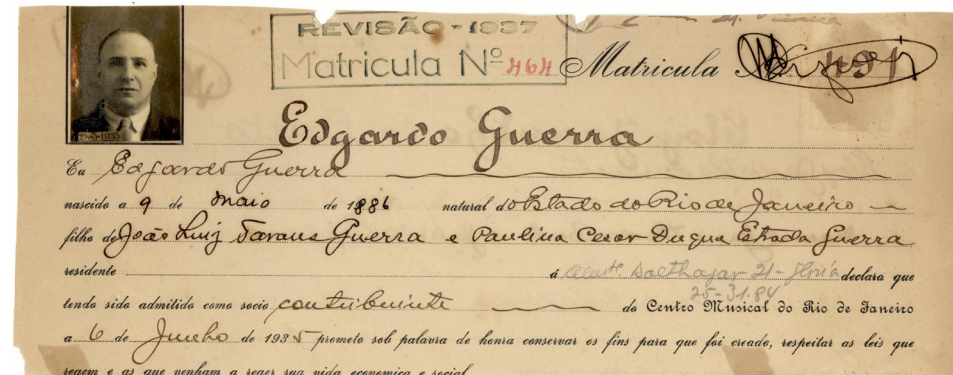 REVISÃO - 1937
Matricula Nº 464
Matricula
Edgardo Guerra
Eu Edgardo Guerra
nascido a 9 de maio de 1886 natural do Estado do Rio de Janeiro
filho de João Luiz Guerra e Paulina Cesar Duque Estrada Guerra
residente á Almte. Balthazar 21 - Glória declara que
25-3184
tendo sido admitido como socio contribuinte do Centro Musical do Rio de Janeiro
a 6 de Junho de 1935 prometo sob palavra de honra conservar os fins para que foi creado, respeitar as leis que
regem e as que venham a reger sua vida economica e social